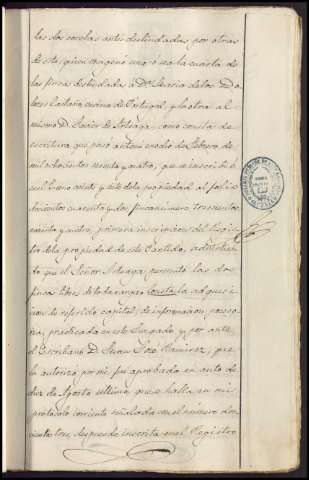 las dos escalas antes deslindadas por otras
de este, quien enageno una ó sea la cuarta de
las fincas deslindadas a Dª Maria de los Do
lores Zacharia vecina de Portugal y la otra al
mismo D. Xavier de Arteaga, como consta de
escritura que paso ante mi en dos de Febrero de
mil ochocientos sesenta y cuatro, que se inscribió
en el tomo veinte y siete de la propiedad al folio
doscientos cuarenta y dos finca numero trescientos
noventa y cuatro, primera inscripcion del Regis
tro de la propiedad de este Partido,
do que el Señor Arteaga permutó las dos
fincas libres de todo gravamen. Consta la adquisi
cion de referido capital, de informacion, poseso
ria, practicada en este Juzgado y por ante
el Escribano D. Juan José Ramirez, que
la autorizó por mi, fue aprobada en auto de
diez de Agosto ultimo, que se halla en mi
protocolo corriente señalada con el numero dos
ciento tres, despues de inscrita en el Registro